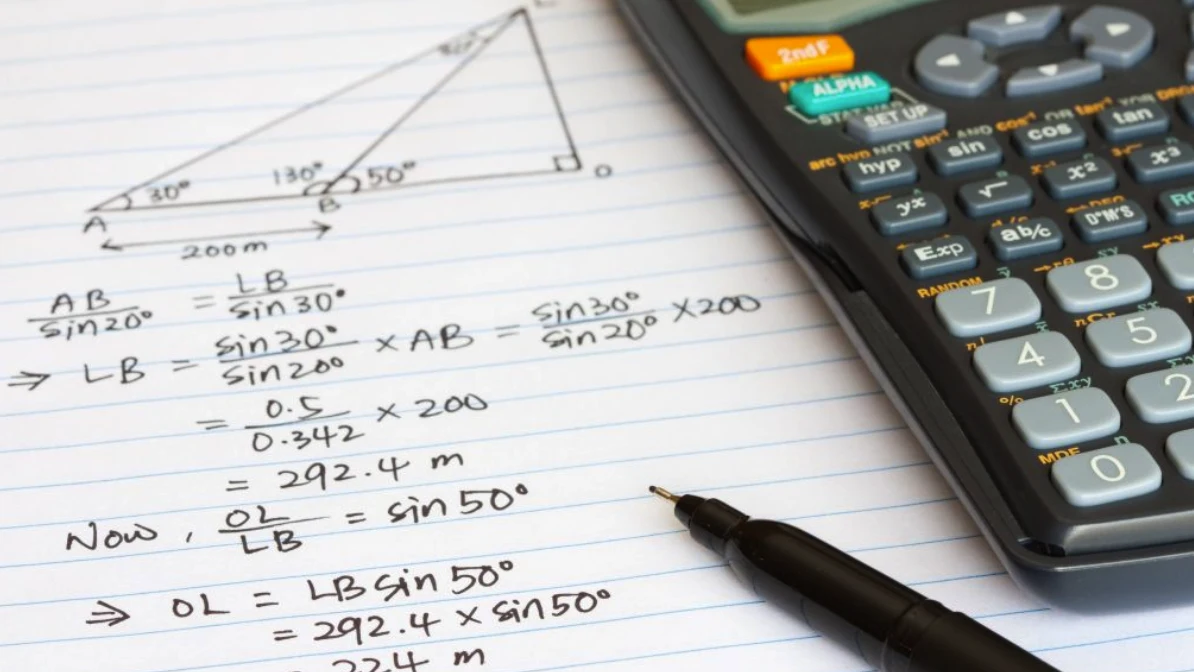 30°
130°
50°
A
B
O
200 m
AB/sin20° = LB/sin30°
⇒ LB = sin30°/sin20° × AB = sin30°/sin20° × 200
= 0.5/0.342 × 200
= 292.4 m
Now, OL/LB = sin 50°
⇒ OL = LB sin 50°
= 292.4 × sin50°
224 m
2ndF
ALPHA
STAT VAR
SET UP
arc hyp NOT sin⁻¹ AND cos⁻¹ OR tan⁻¹ XOR
hyp sin cos tan
yˣ √ x² x³
Exp ab/c D°M'S
RANDOM
7 8
n! nCr
4 5
% Σxy
1 2
MDF
0